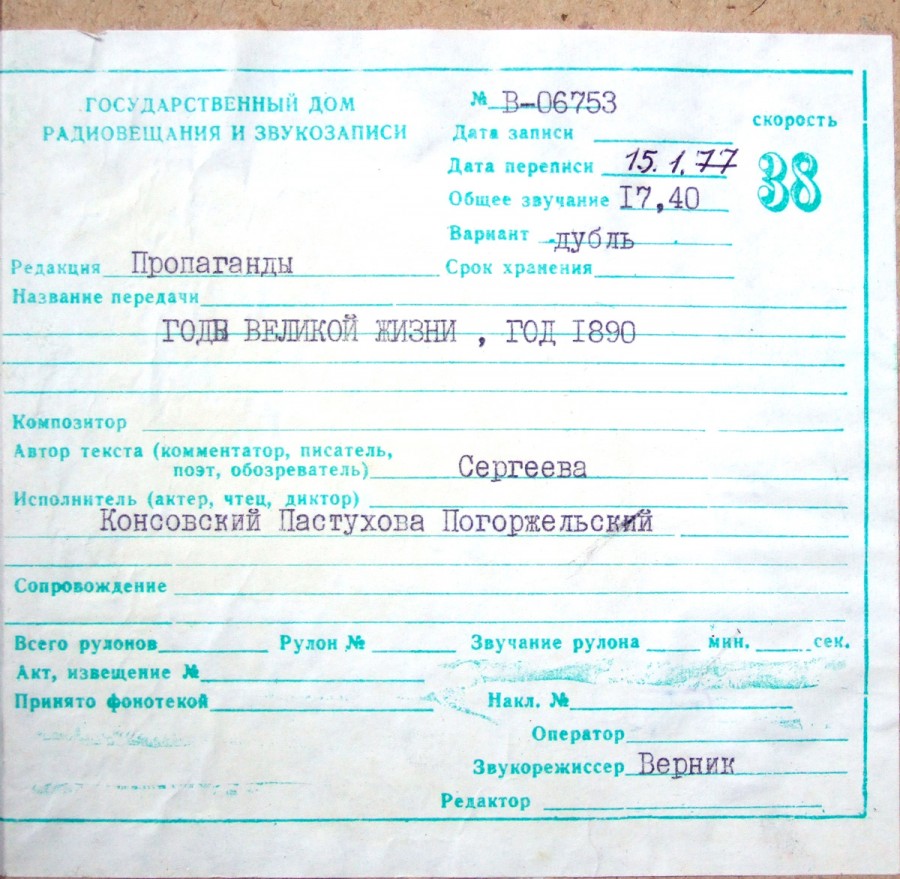 ГОСУДАРСТВЕННЫЙ ДОМ
РАДИОВЕЩАНИЯ И ЗВУКОЗАПИСИ
№ В-06753
Дата записи
скорость
38
Дата переписи 15.1.77
Общее звучание 17,40
Вариант дубль
Редакция Пропаганды
Срок хранения
Название передачи
ГОДЫ ВЕЛИКОЙ ЖИЗНИ , ГОД 1890
Композитор
Автор текста (комментатор, писатель,
поэт, обозреватель) Сергеева
Исполнитель (актер, чтец, диктор)
Консовский Пастухова Погоржельский
Сопровождение
Всего рулонов Рулон № Звучание рулона мин. сек.
Акт, извещение №
Принято фонотекой Накл. №
Оператор
Звукорежиссер Верник
Редактор